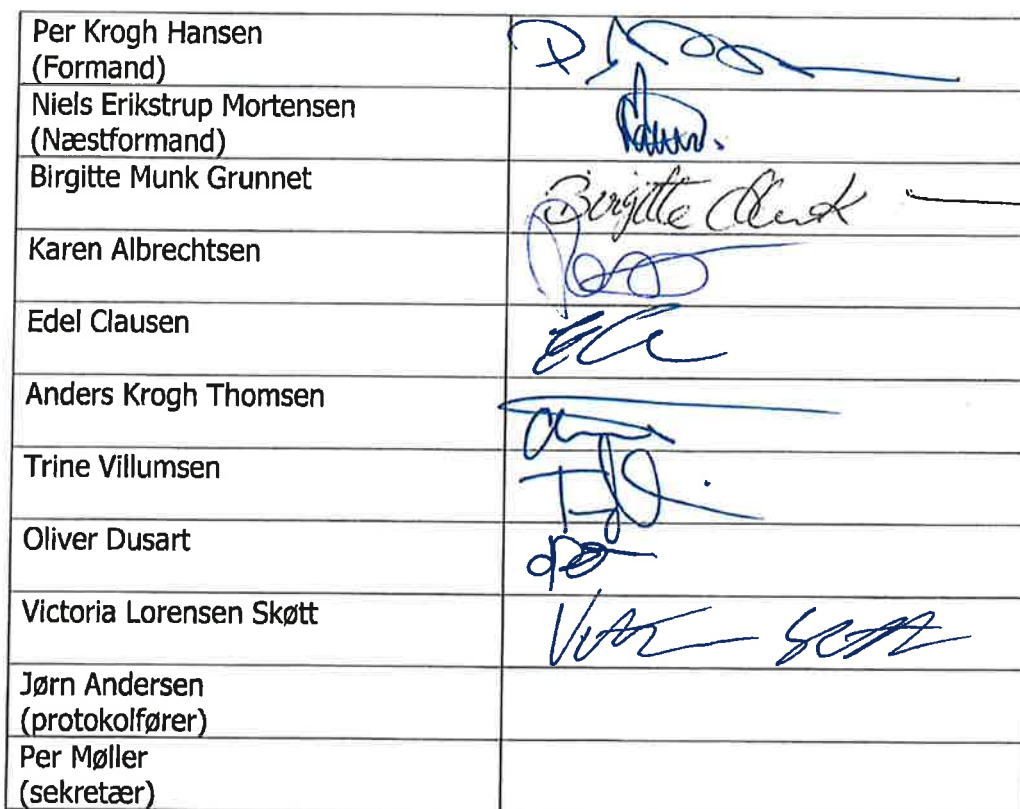 Per Krogh Hansen
(Formand)
Niels Erikstrup Mortensen
(Næstformand)
Birgitte Munk Grunnet
Birgitte Munk
Karen Albrechtsen
Edel Clausen
Anders Krogh Thomsen
Trine Villumsen
Oliver Dusart
Victoria Lorensen Skøtt
Jørn Andersen
(protokolfører)
Per Møller
(sekretær)